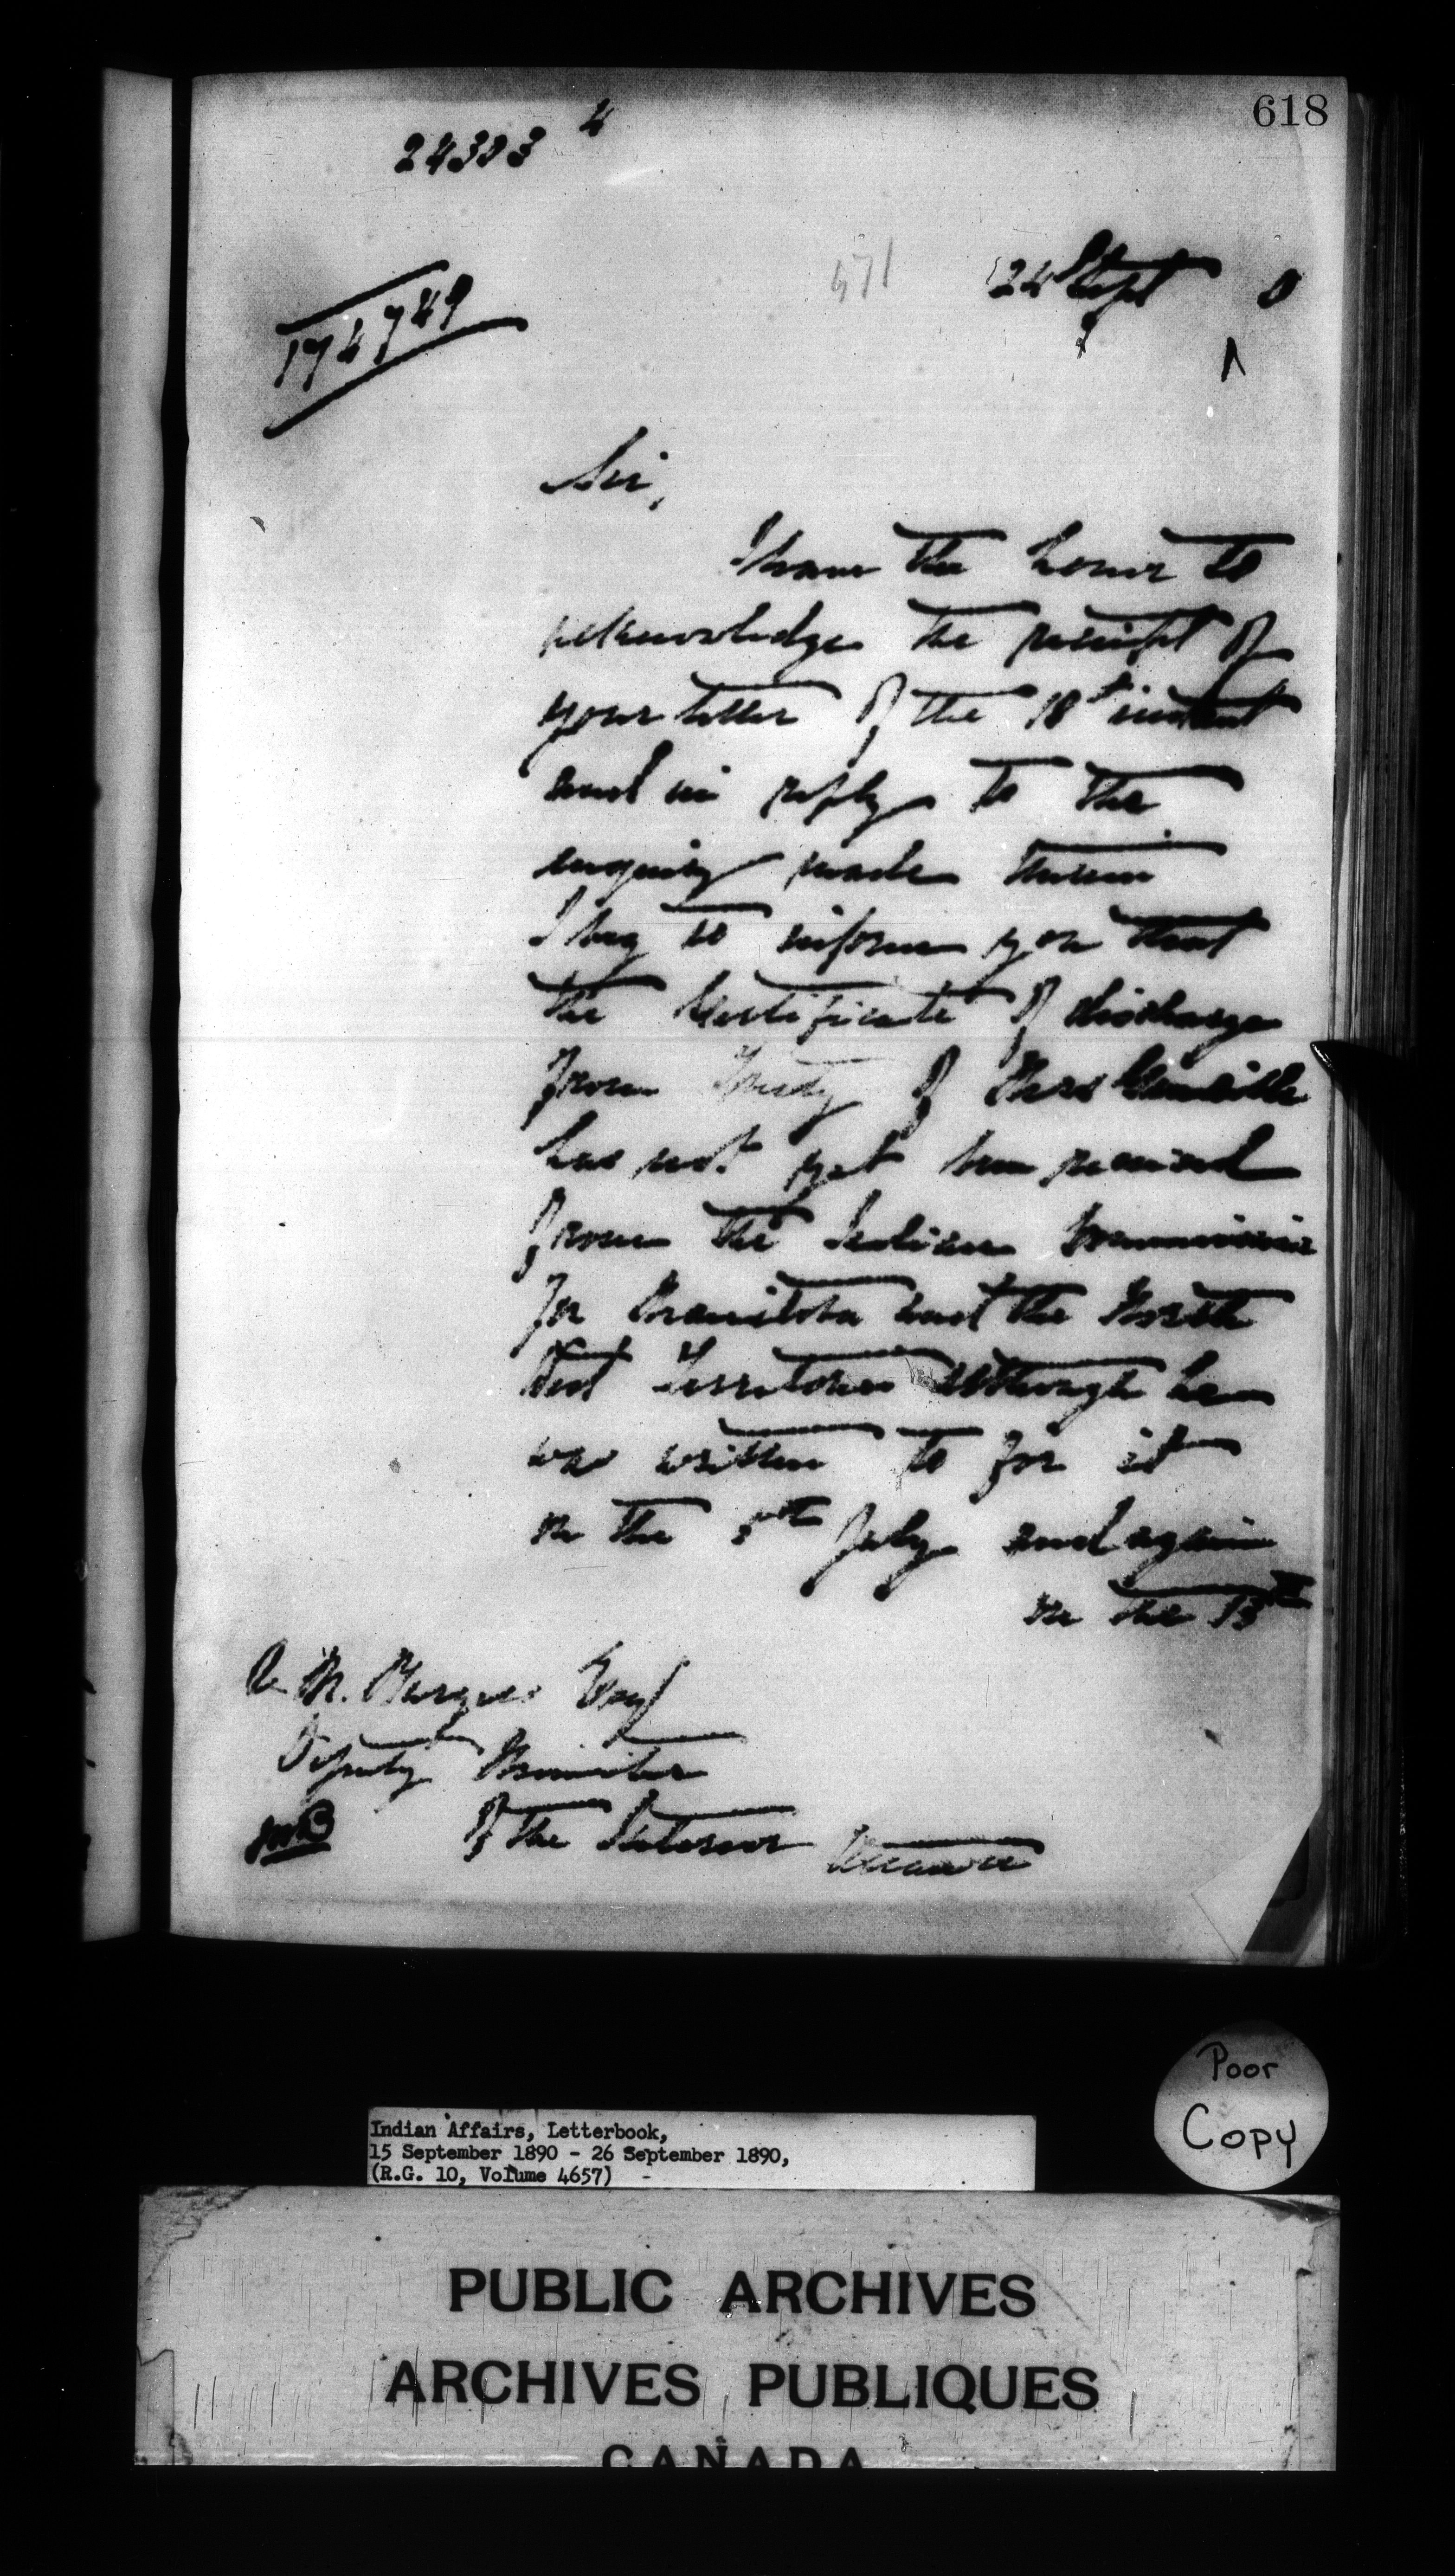 618
24303 4
174749
571
24 Sept 0
Sir,
I have the honor to
acknowledge the receipt of
your letter of the 18th instant
and in reply to the
enquiry made therein
I beg to inform you that
the Certificate of discharge
from Treaty of Mrs
has not yet been received
from the Indian Commissioner
for Manitoba and the North
West Territories although he
was written to for it
on the 5th July and again
on the 13th
A. M. Burgess Esq
Deputy Minister
of the Interior Ottawa
JMB
Poor
Copy
Indian Affairs, Letterbook,
15 September 1890 - 26 September 1890,
(R.G. 10, Volume 4657) -
PUBLIC ARCHIVES
ARCHIVES PUBLIQUES
CANADA